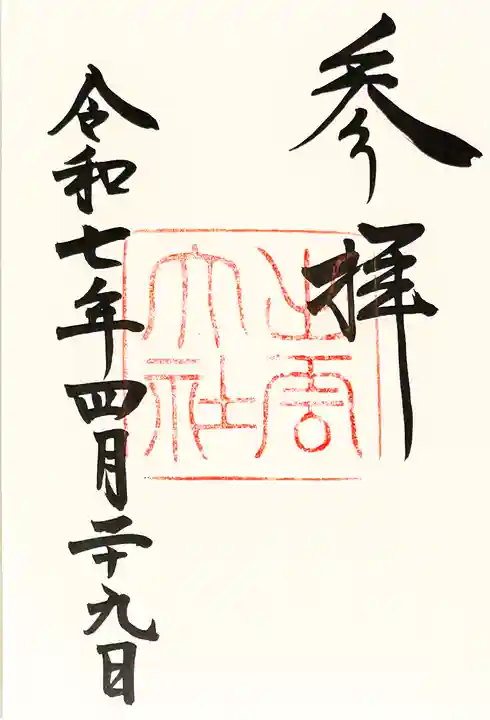 参拝
出雲
大社
令和七年四月二十九日